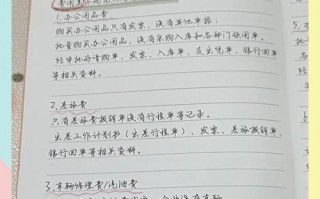 1.办公用品费
购买办公用品只有发票,没有其他单据;
批量购买办公用品,没有采购入库和各种门领用单。
经审批的请购单、发票、入库单、支出凭单、银行回单
等相关资料。
2、差旅费
只有差旅费报销单没有行程单等记录。
出差工作计划书(出差行程单)、发票、差旅报销单、
银行回单等相关资料。
3.车辆修理费/汽油费